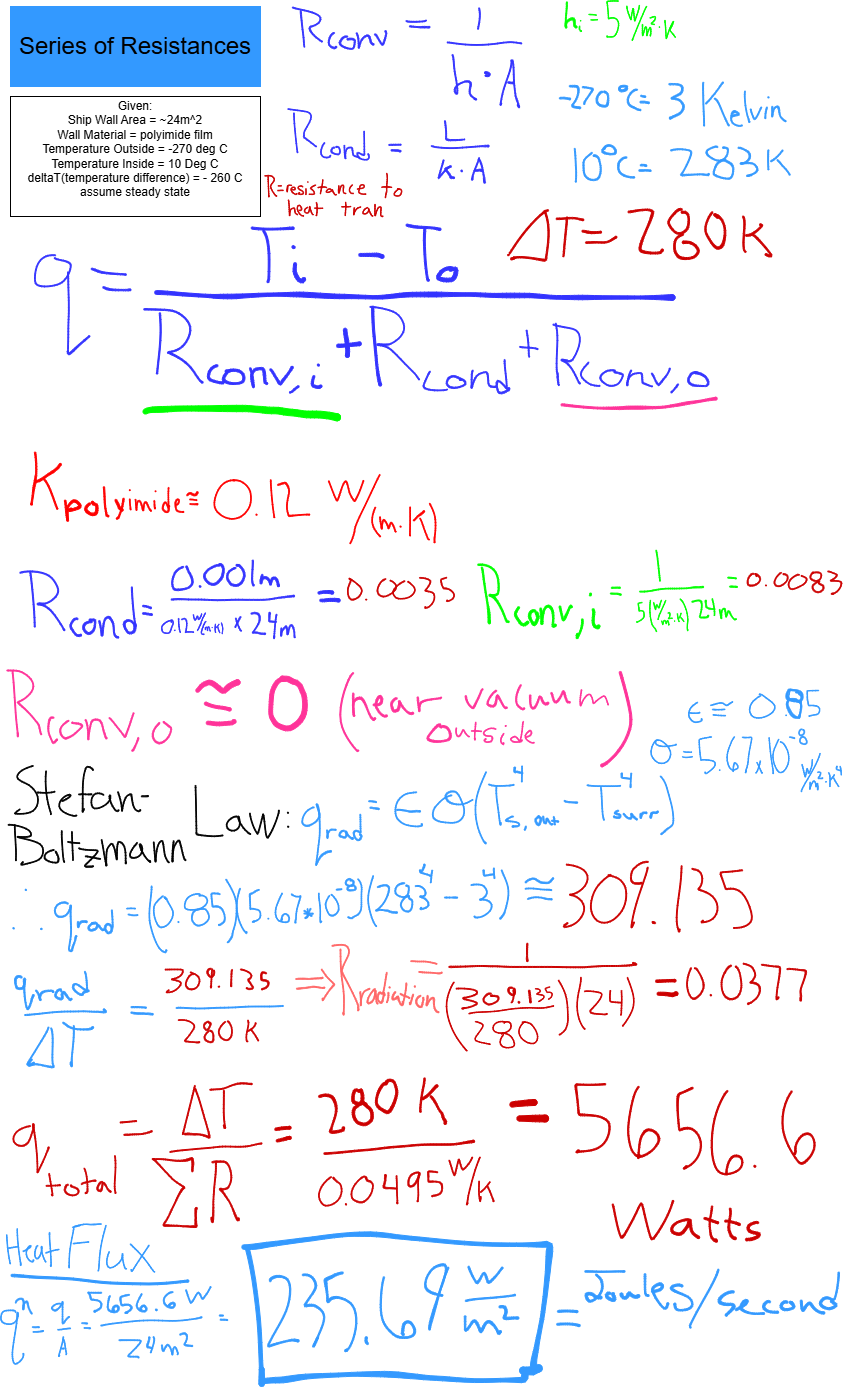 Series of Resistances
Given:
Ship Wall Area = ~24m^2
Wall Material = polyimide film
Temperature Outside = -270 deg C
Temperature Inside = 10 Deg C
deltaT(temperature difference) = - 260 C
assume steady state
Rconv = 1 / (h · A)
hi = 5 W/m²·K
Rcond = L / (k · A)
-270°C = 3 Kelvin
10°C = 283K
R=resistance to
heat tran
ΔT = 280K
q = (Ti - To) / (Rconv,i + Rcond + Rconv,o)
Kpolyimide ≅ 0.12 W/(m·K)
Rcond = 0.001m / (0.12 W/(m·K) x 24m) = 0.0035
Rconv,i = 1 / (5(W/m²·K) 24m) = 0.0083
Rconv,o ≅ 0 (near vacuum
outside)
ϵ ≅ 0.85
σ = 5.67x10⁻⁸ W/m²·K⁴
Stefan-
Boltzmann Law: qrad = ϵσ(T⁴s,out - T⁴surr)
∴ qrad = (0.85)(5.67*10⁻⁸)(283⁴ - 3⁴) ≅ 309.135
qrad / ΔT = 309.135 / 280 K ⇒ Rradiation = 1 / ((309.135 / 280)(24)) = 0.0377
qtotal = ΔT / ΣR = 280 K / 0.0495 W/K = 5656.6
Watts
Heat Flux
q" = q / A = 5656.6 W / 24m² = 235.69 W/m² = Joules/second